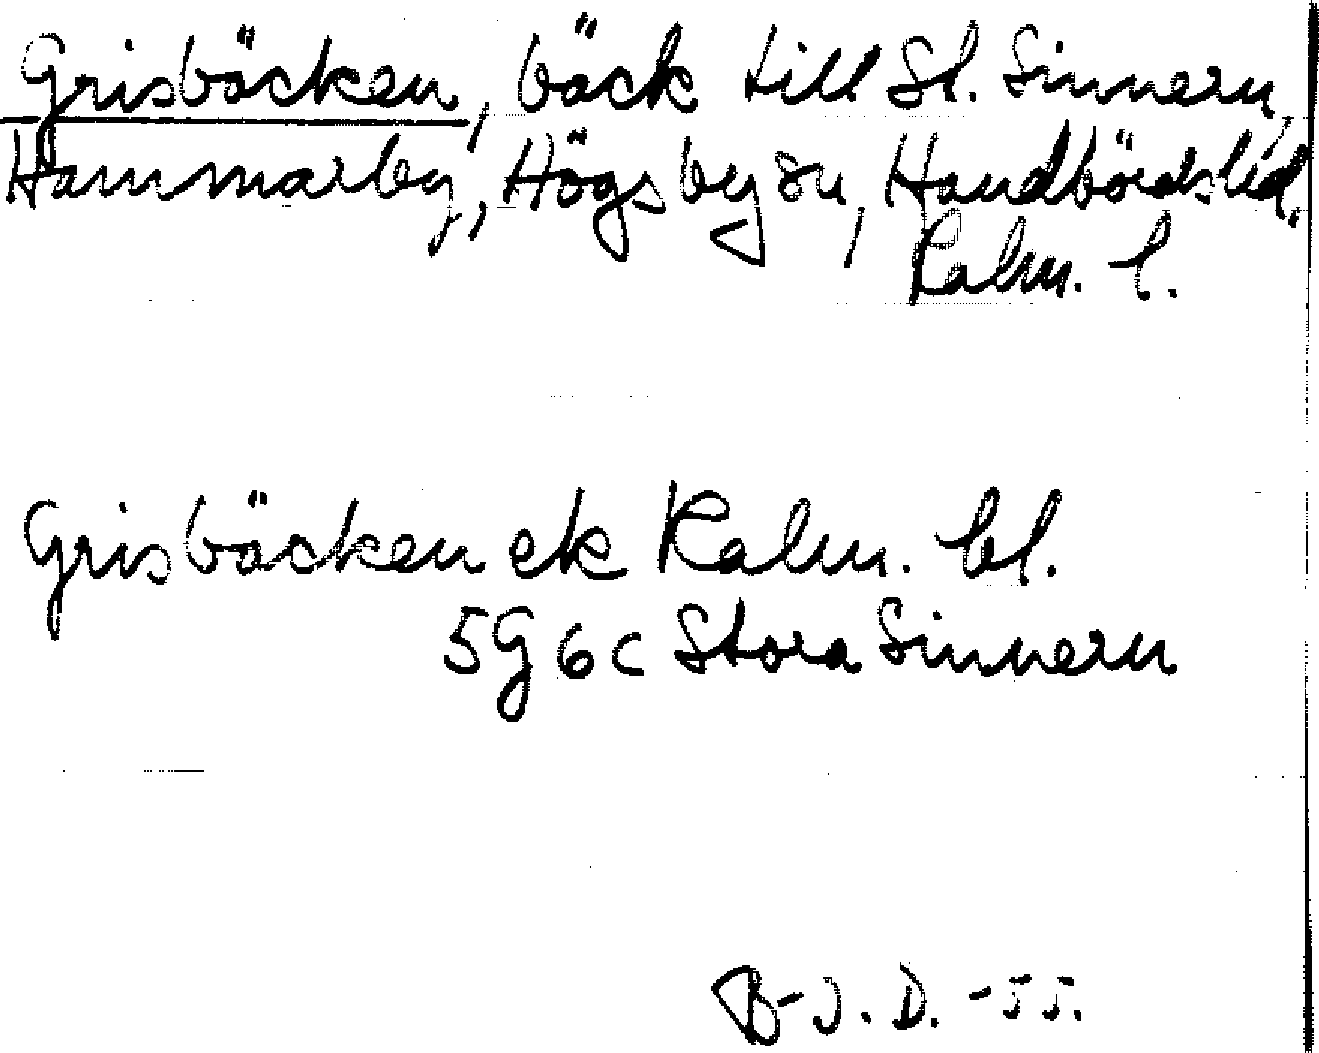 Grisbäcken, bäck till St. Sinnern,
Hammarby, Högsby sn, Handbörds hd,
Kalm. l.
Grisbäcken ek Kalm. bl.
5G 6c Stora Sinnern
B-J. D. -55.